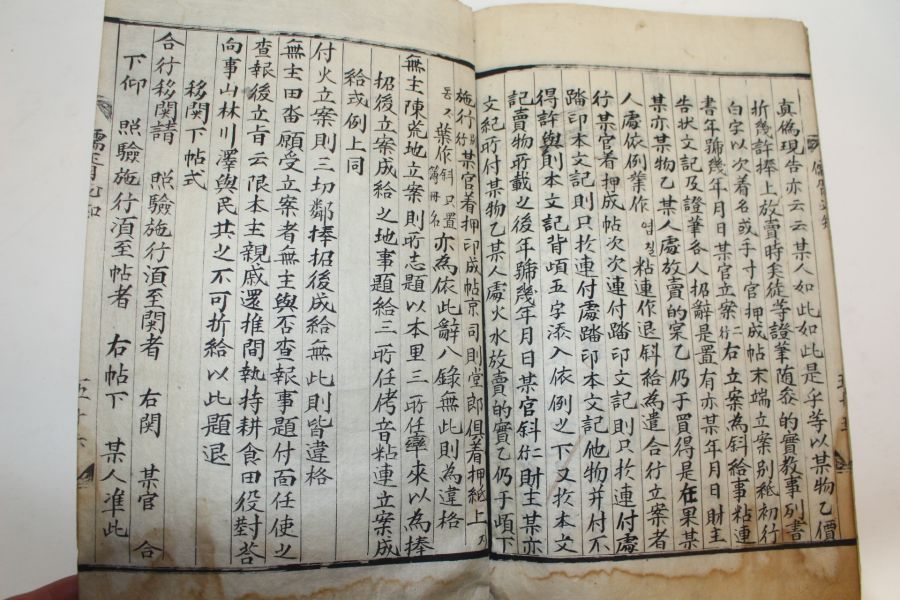 真偽現告亦云云某人如此如此是乎等以某物乙價
折幾許捧上放賣時矣徒等證筆随叅的實敎事列書
白字以次着名或手寸官押成帖末端立案别紙初行
書年號幾年月日某官立案右立案為斜給事粘連
告状文記及證筆各人招辭是置有亦某年月日財主
某亦某物乙某人處放賣的宲乙仍于買得是在果某
人處依例葉作粘連作退斜給為遣合行立案者
行某官着押成帖次次連付踏印文記則只扵連付處
踏印本文記則只扵連付處踏印本文記他物并付不
得許與則本文記背頉五字添入依例之下又扵本文
記賣物所載之後年號幾年月日某官斜財主某亦
文紀所付某物乙某人處火水放賣的實乙仍于頉下
施行行某官着押印成帖京司則堂郎俱着押紙上
葉作斜只置亦為依此辭入錄無此則為違格
無主陳荒地立案則所志題以本里三所任率來以為捧
招後立案成給之地事題給三所任侤音粘連立案成
給或例上同
付火立案則三切鄰捧招後成給無此則皆違格
無主田畓願受立案者無主與否查報事題付面任使之
查報後立旨云限本主親戚還推間執持耕食田役對答
向事山林川澤與民共之不可折給以此題退
移関下帖式
合行移関請 照驗施行湏至関者 右関 某官 合
下仰 照驗施行湏至帖者 右帖下 某人准此